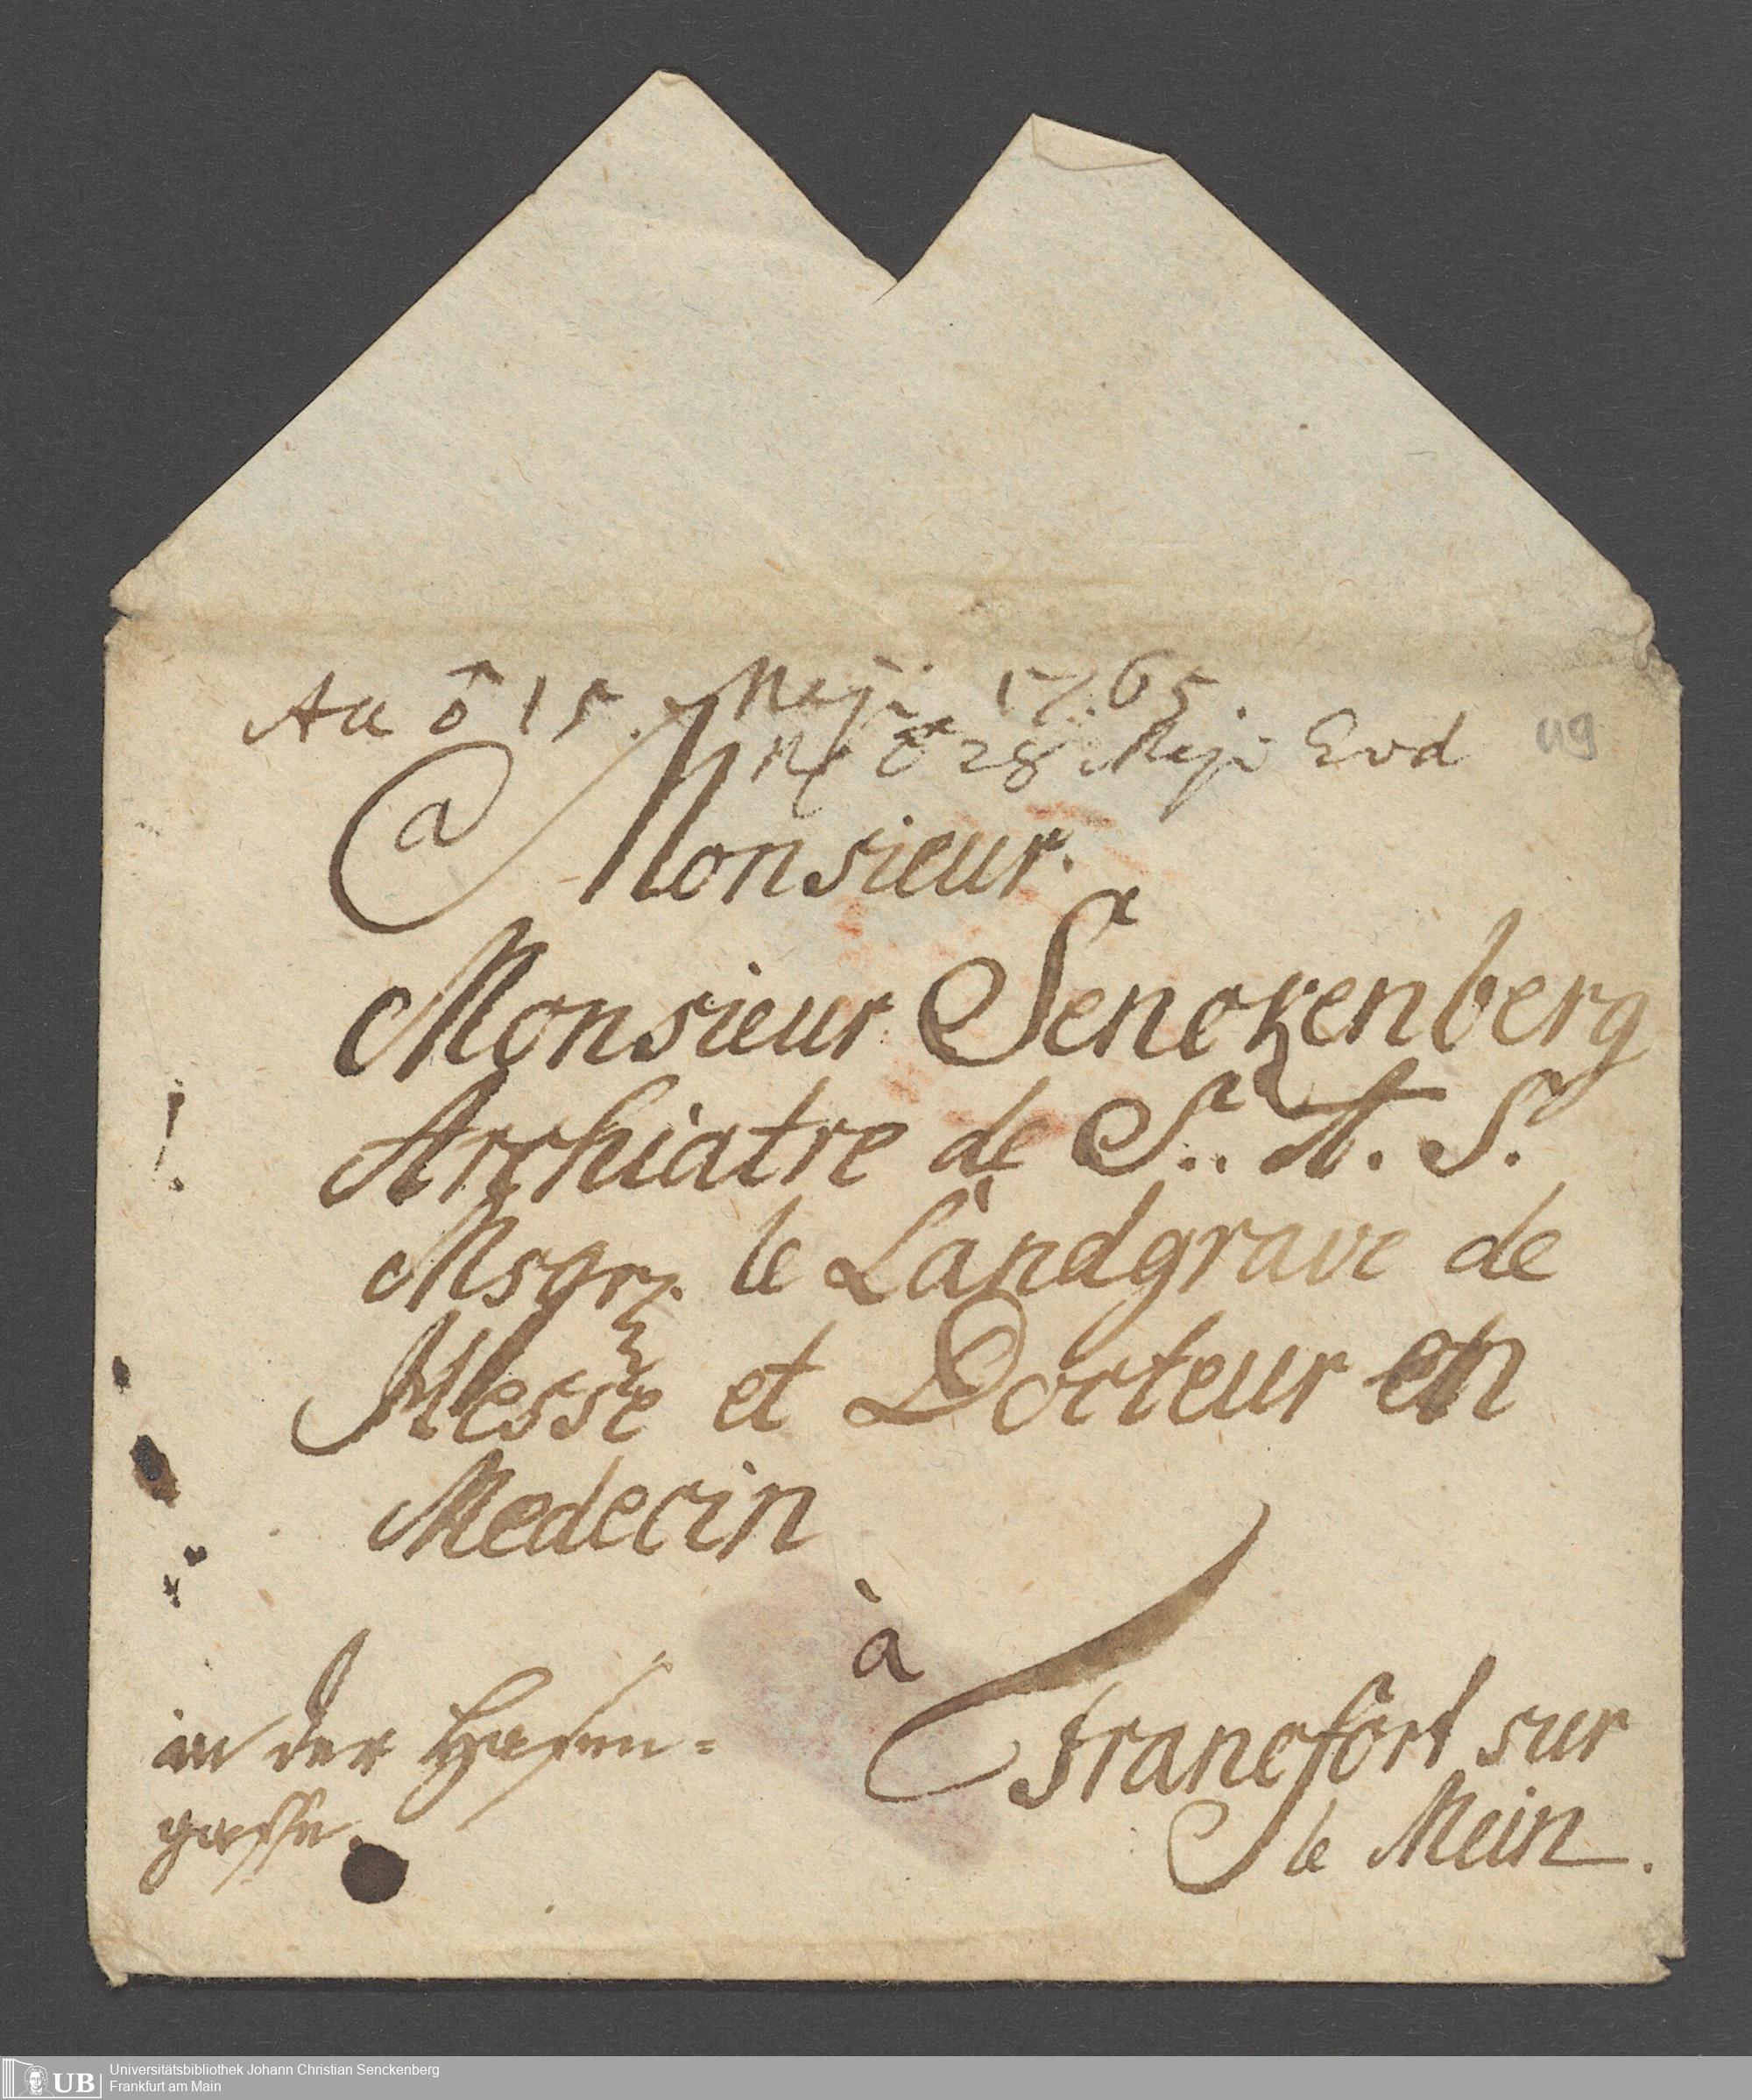 15. Maji 1765.
28 Maji
119
a Monsieur.
Monsieur Senckenberg
Archiatre de S. A. S.
Msgr. le Landgrave de
Hesse et Docteur en
Medecin
à
Francfort sur
le Mein.
in der Hasen=
gasse.
Universitätsbibliothek Johann Christian Senckenberg
Frankfurt am Main
UB